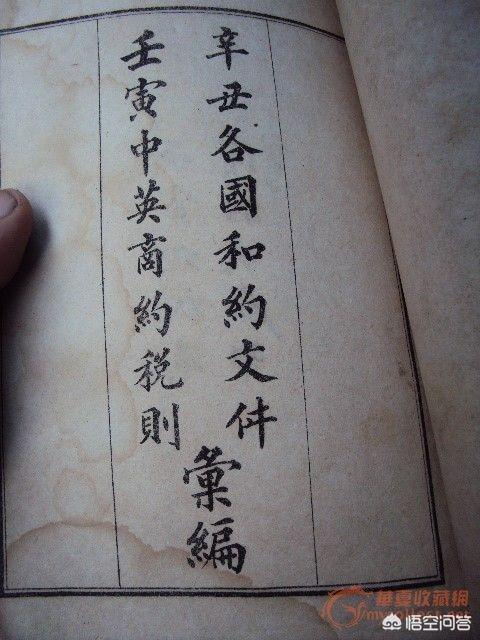 辛丑各國和約文件
壬寅中英商約稅則
彙編
華夏收藏網
悟空问答